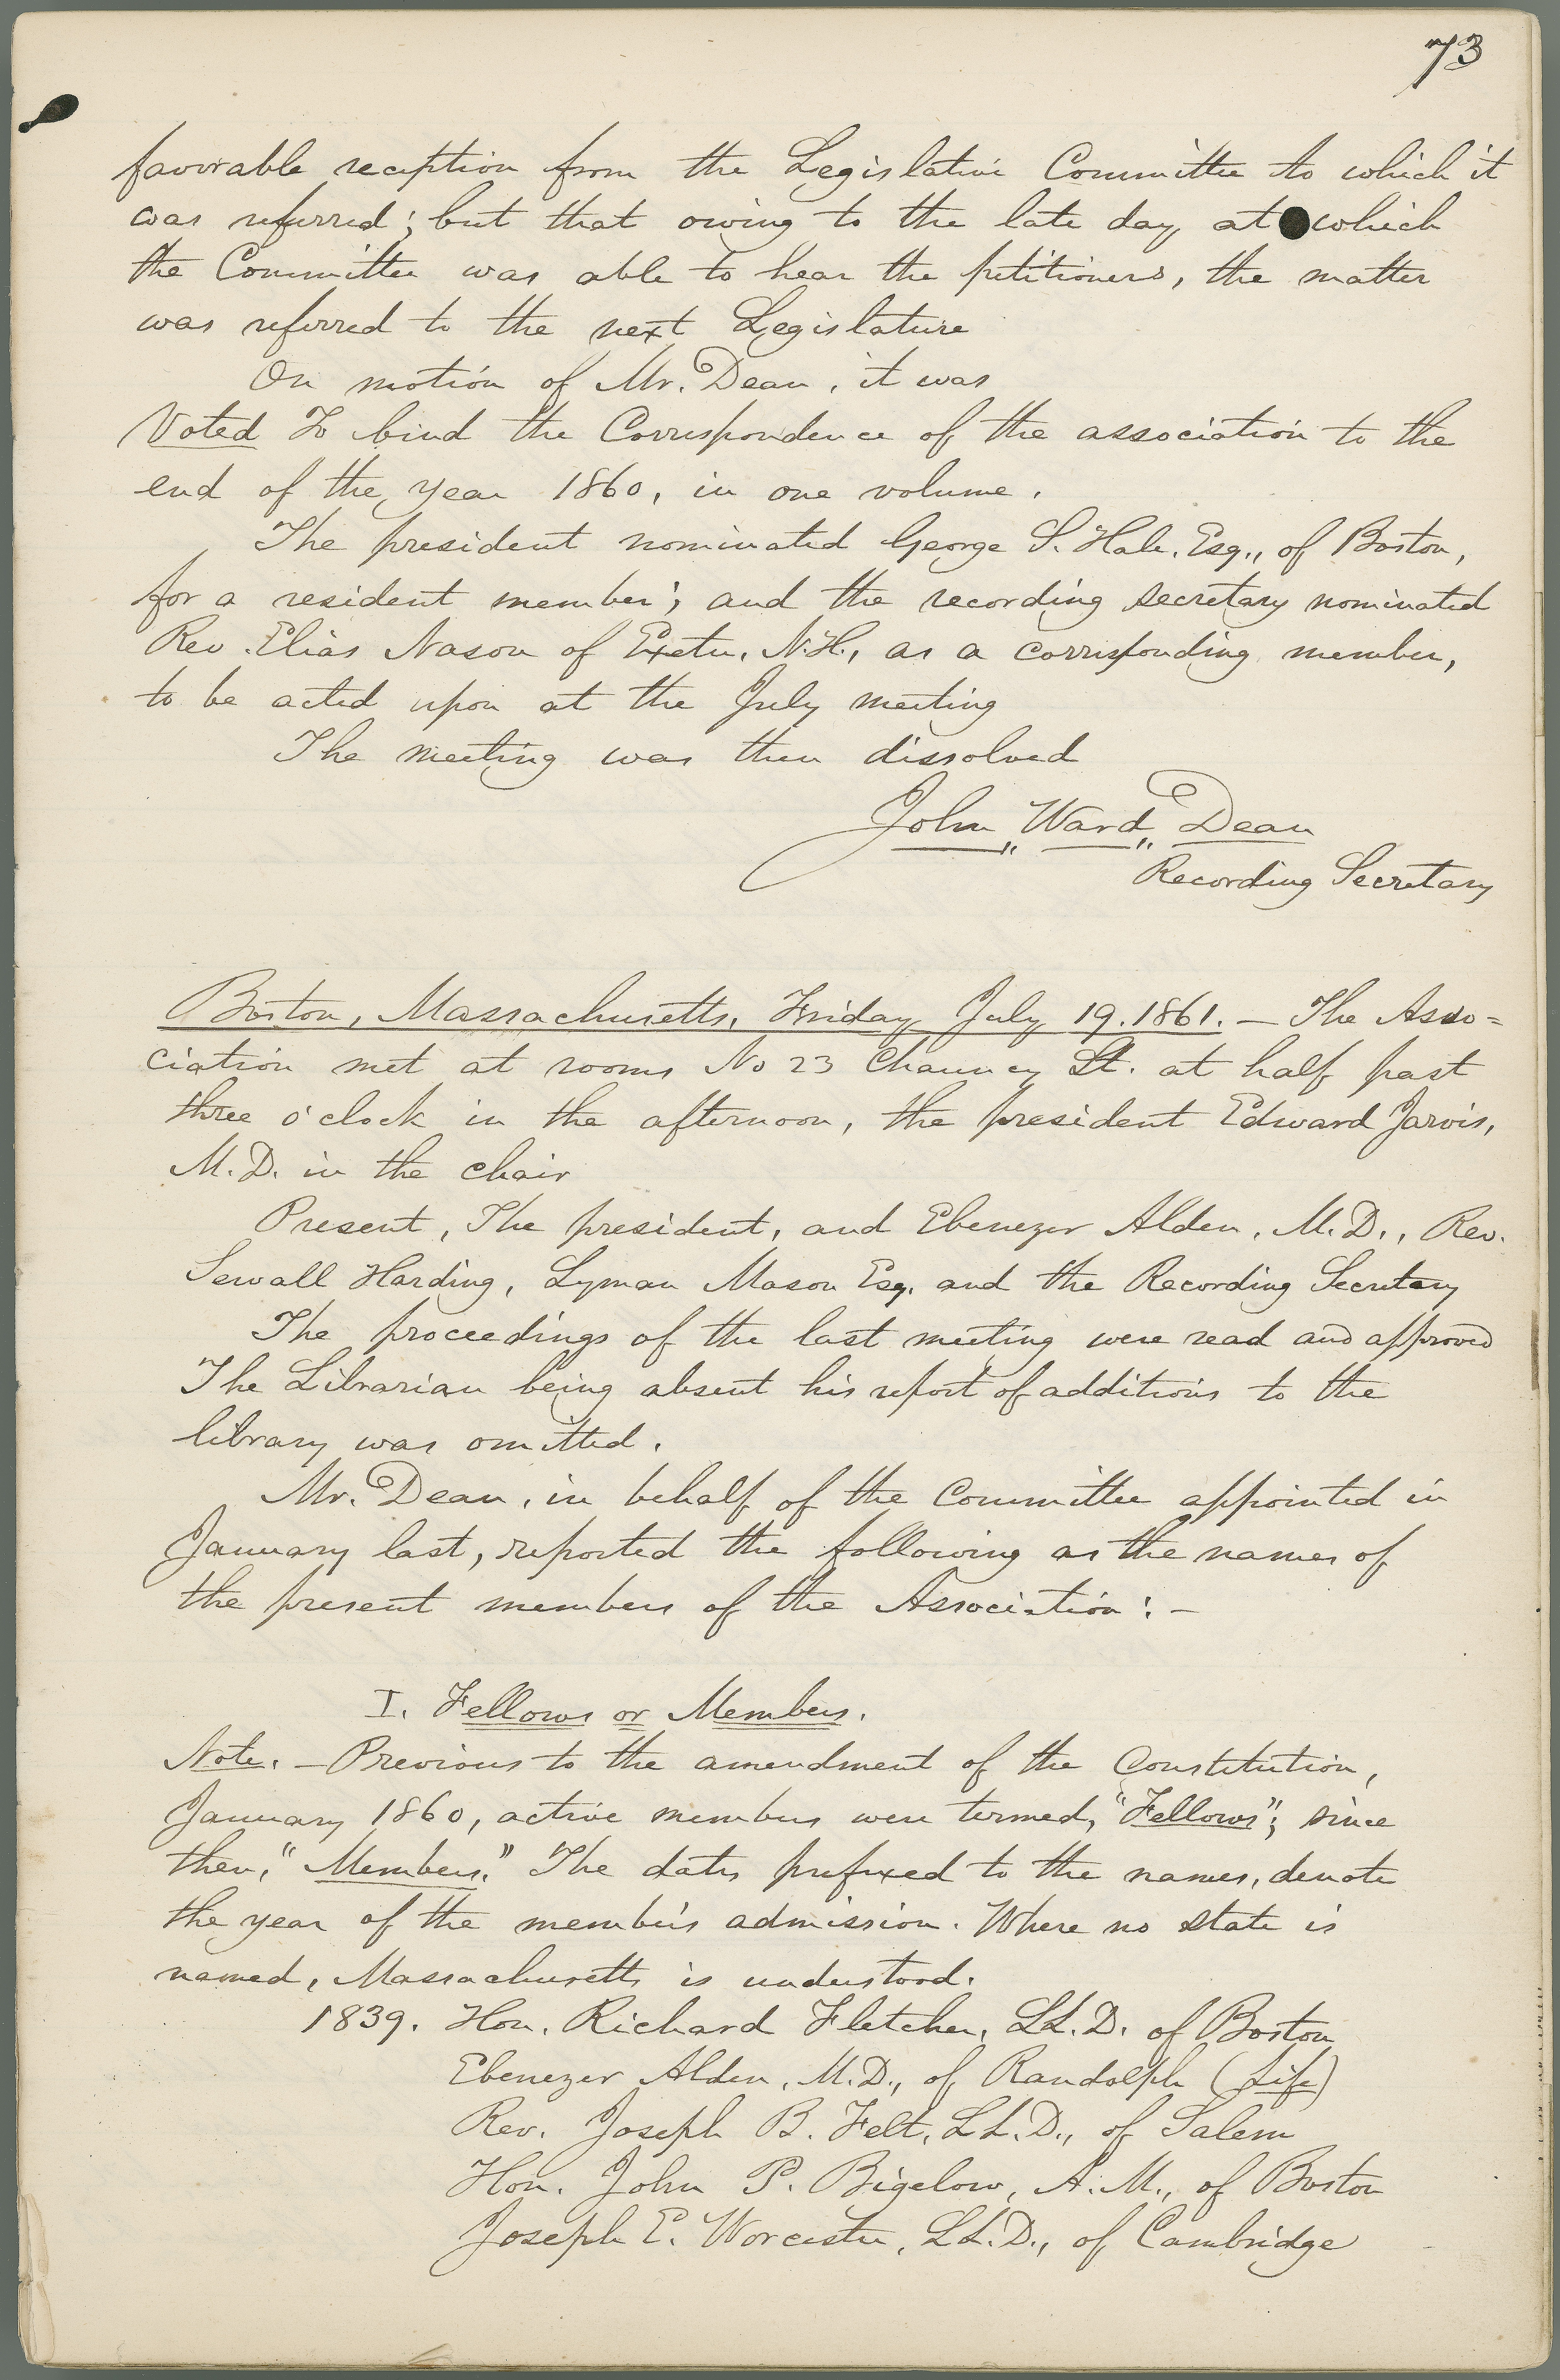 73
favorable reception from the Legislative Committee to which it
was referred; but that owing to the late day at which
the Committee was able to hear the petitioners, the matter
was referred to the next Legislature
On motion of Mr. Dean, it was
Voted To bind the Correspondence of the association to the
end of the year 1860, in one volume.
The president nominated George S. Hale, Esq., of Boston,
for a resident member; and the recording secretary nominated
Rev. Elias Nason of Exeter, N.H., as a corresponding member,
to be acted upon at the July meeting
The meeting was then dissolved
John „ Ward „ Dean
Recording Secretary
Boston, Massachusetts, Friday July 19. 1861. — The Asso=
ciation met at rooms No 23 Chauncy St. at half past
three o'clock in the afternoon, the president Edward Jarvis,
M.D. in the chair
Present, The president, and Ebenezer Alden, M.D., Rev.
Sewall Harding, Lyman Mason Esq. and the Recording Secretary
The proceedings of the last meeting were read and approved
The Librarian being absent his report of additions to the
library was omitted.
Mr. Dean, in behalf of the Committee appointed in
January last, reported the following as the names of
the present members of the Association: —
I. Fellows or Members.
Note. — Previous to the amendment of the Constitution,
January 1860, active members were termed, "Fellows"; since
then, "Members." The dates prefixed to the names, denote
the year of the member's admission. Where no state is
named, Massachusetts is understood.
1839. Hon. Richard Fletcher, LL.D. of Boston
Ebenezer Alden, M.D., of Randolph (Life)
Rev. Joseph B. Felt, LL.D., of Salem
Hon. John P. Bigelow, A.M., of Boston
Joseph E. Worcester, LL.D., of Cambridge